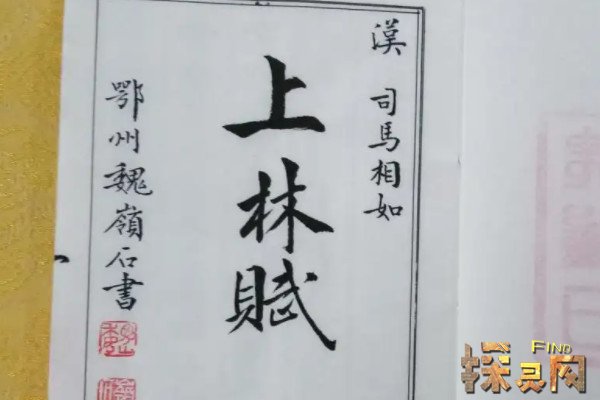 漢 司馬相如
上林賦
鄂州魏嶺石書
FIND
探灵网